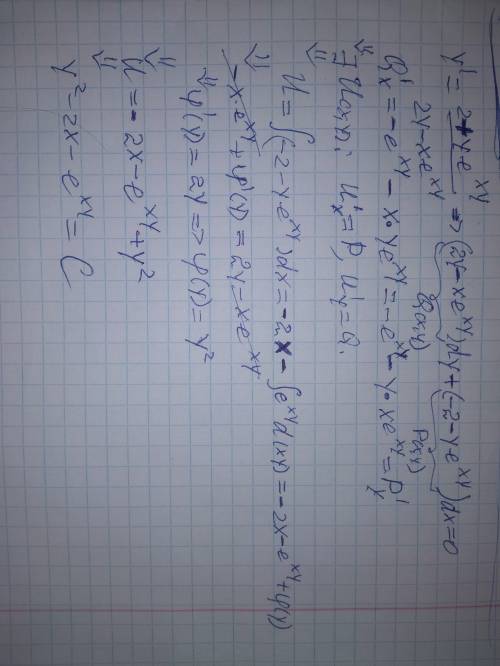 y' = (2+y·e^{xy})/(2y-xe^{xy}) => (2y-xe^{xy})dy+(-2-y·e^{xy})dx=0
Q(x,y) P(x,y)
Q'_x = -e^{xy} - x·ye^{xy} = -e^{xy} - y·xe^{xy} = P'_y
⇓
∃ U(x,y): U'_x = P, U'_y = Q.
⇓
U = ∫(-2-y·e^{xy})dx = -2x - ∫e^{xy}d(xy) = -2x-e^{xy}+φ(y)
⇓
-x·e^{xy}+φ'(y) = 2y-xe^{xy}
⇓
φ'(y) = 2y => φ(y) = y²
⇓
U = -2x-e^{xy}+y²
⇓
y²-2x-e^{xy} = C